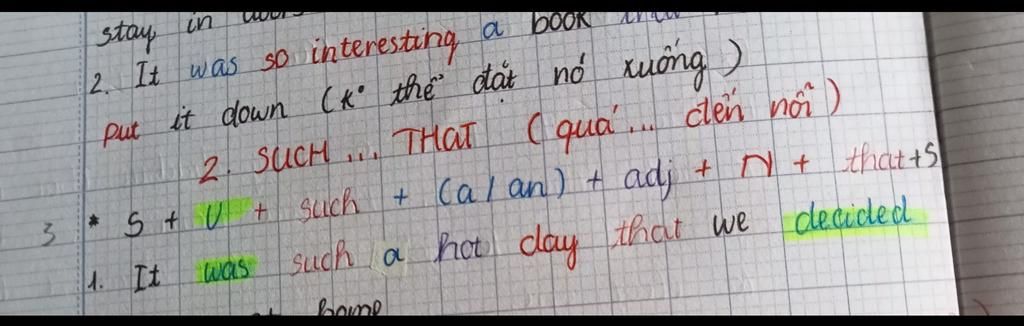 stay in
2. It was so interesting a book
put it down (k° thể đặt nó xuống)
2. SUCH ... THAT (quá ... đến nỗi)
3 * S + V + such + (a/an) + adj + N + that + S
1. It was such a hot day that we decided
home